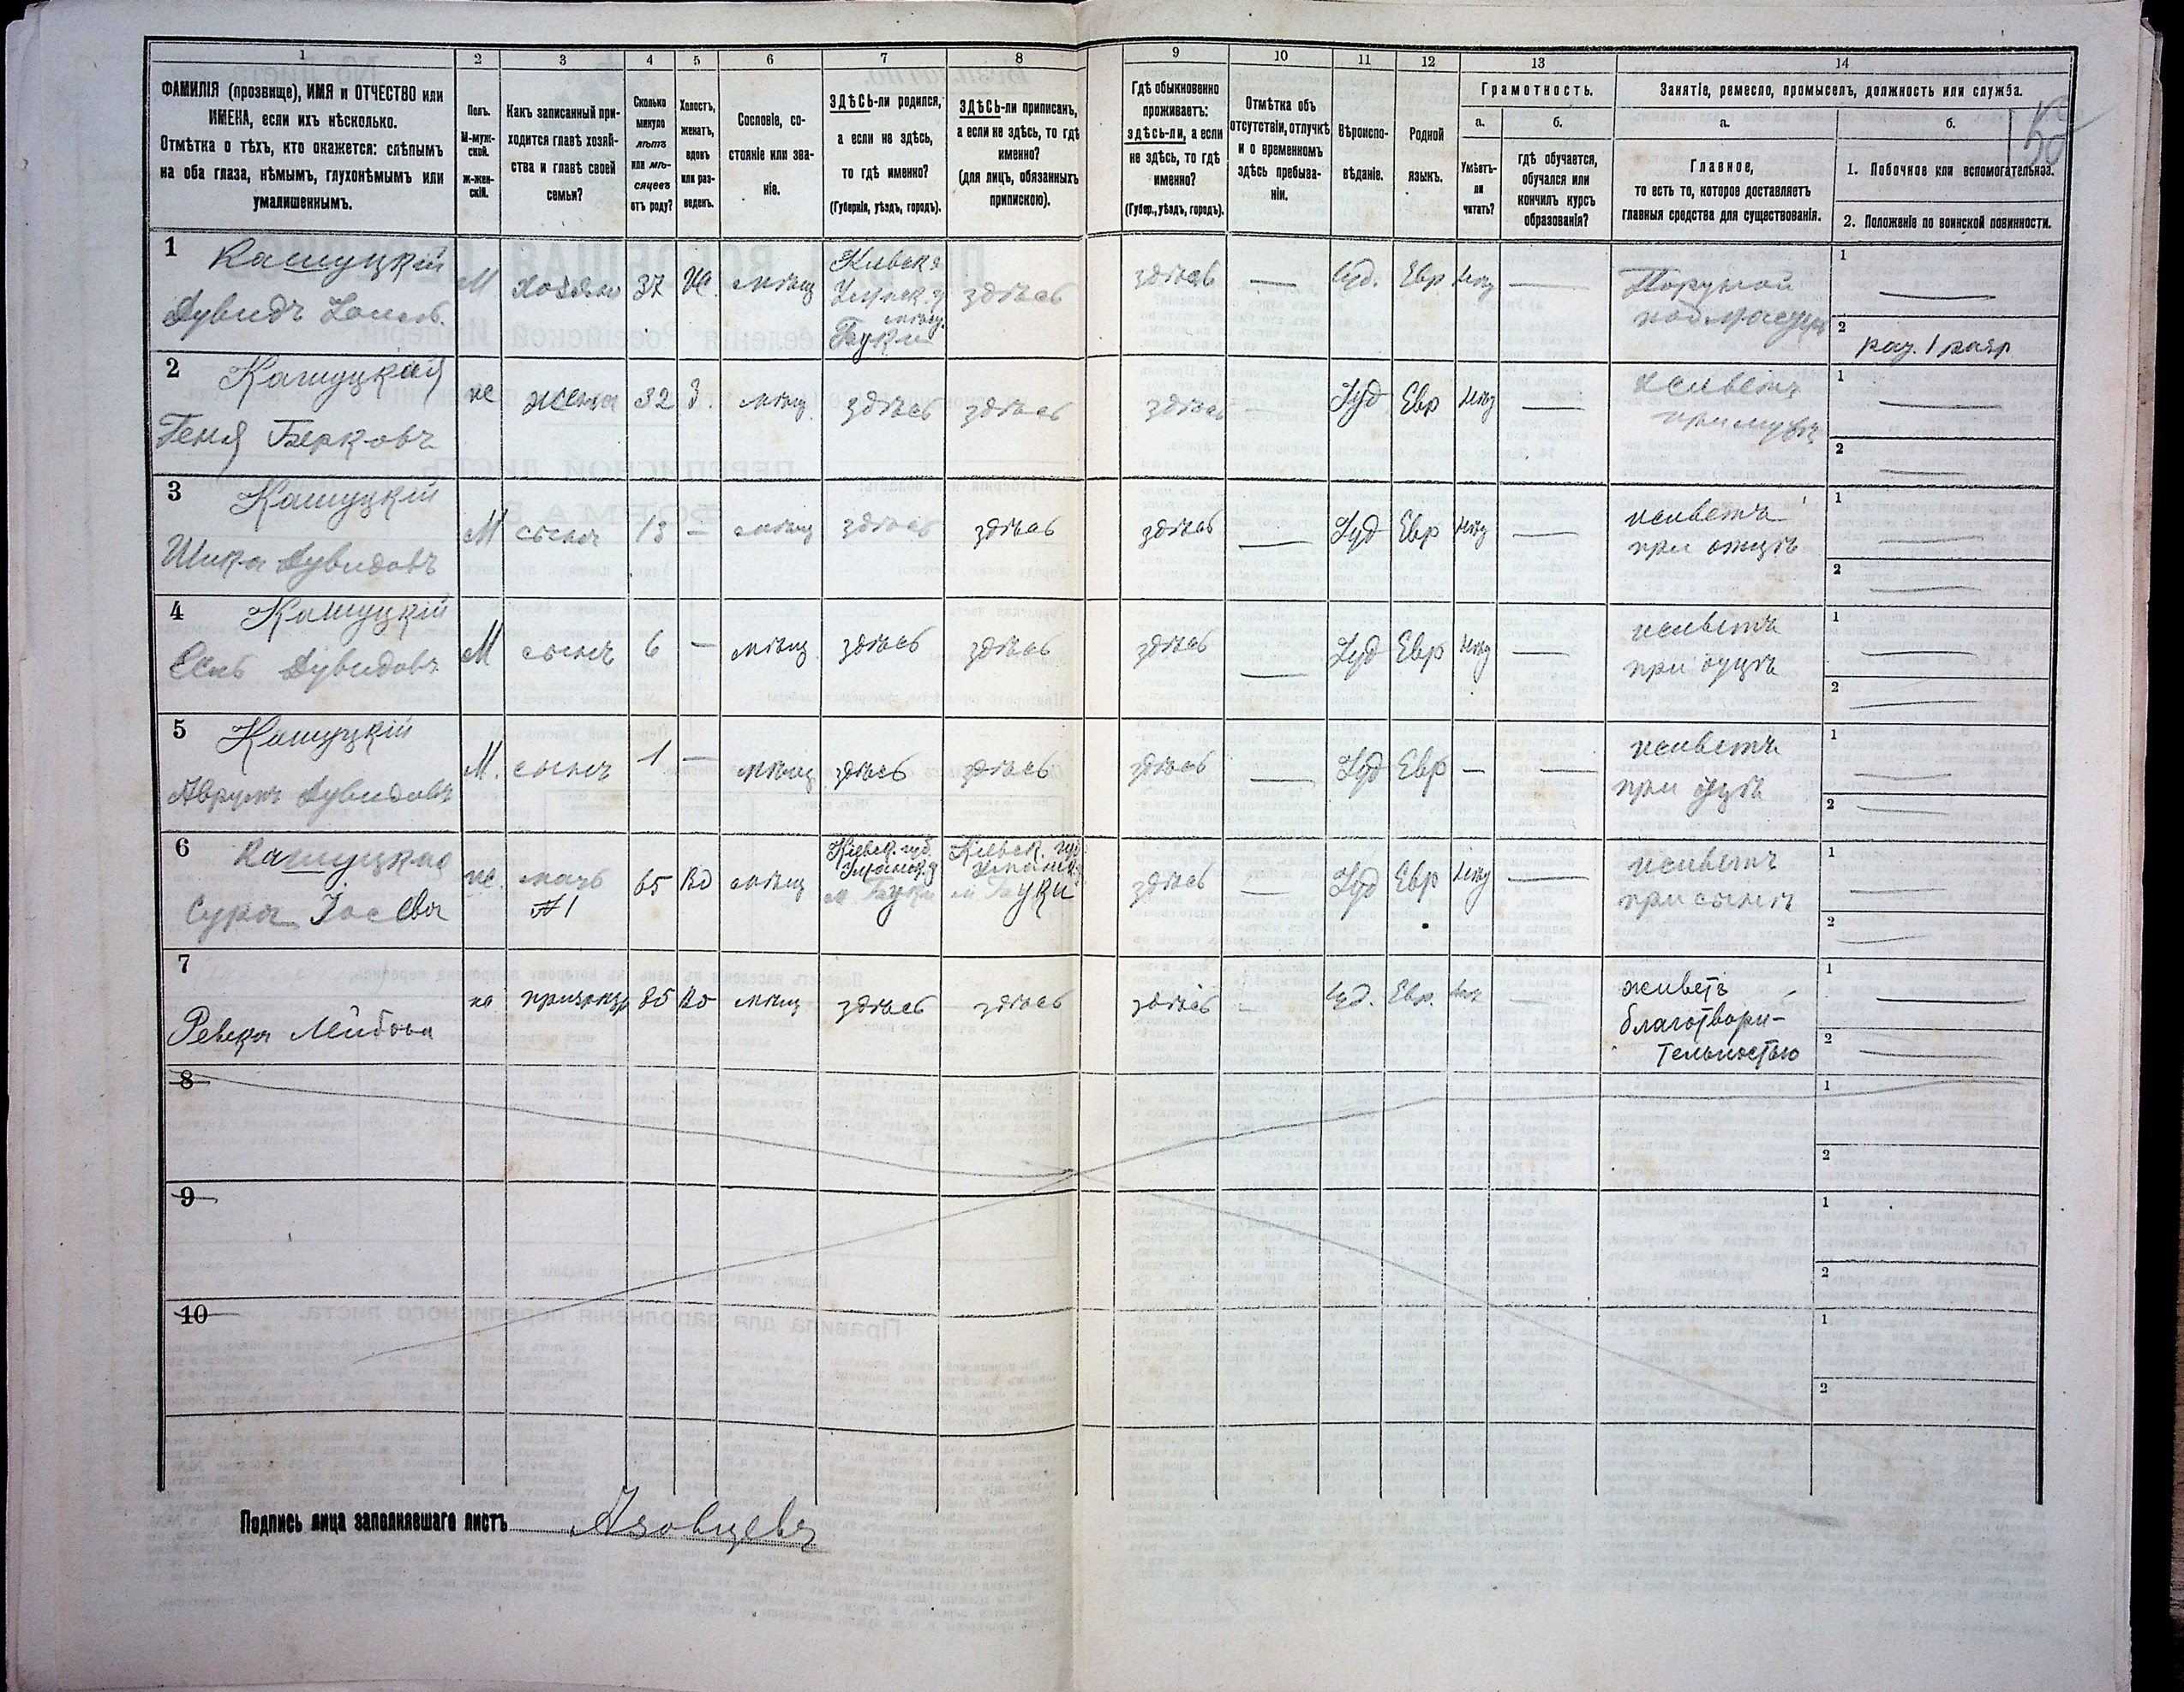 1 2 3 4 5 6 7 8 9 10 11 12 13 14
ФАМИЛІЯ (прозвище), ИМЯ и ОТЧЕСТВО или
ИМЕНА, если ихъ нѣсколько.
Отмѣтка о тѣхъ, кто окажется: слѣпымъ
на оба глаза, нѣмымъ, глухонѣмымъ или
умалишеннымъ.
Полъ.
М-муж-
ской.
ж-жен-
скій.
Какъ записанный при-
ходится главѣ хозяй-
ства и главѣ своей
семьи?
Сколько
минуло
лѣтъ
или мѣ-
сяцевъ
отъ роду?
Холостъ,
женатъ,
вдовъ
или раз-
веденъ.
Сословіе, со-
стояніе или зва-
ніе.
ЗДѢСЬ-ли родился,
а если не здѣсь,
то гдѣ именно?
(Губернія, уѣздъ, городъ).
ЗДѢСЬ-ли приписанъ,
а если не здѣсь, то гдѣ
именно?
(для лицъ, обязанныхъ
припискою).
Гдѣ обыкновенно
проживаетъ:
здѣсь-ли, а если
не здѣсь, то гдѣ
именно?
(Губер., уѣздъ, городъ).
Отмѣтка объ
отсутствіи, отлучкѣ
и о временномъ
здѣсь пребыва-
ніи.
Вѣроиспо-
вѣданіе.
Родной
языкъ.
Грамотность.
а.
Умѣетъ-
ли
читать?
б.
гдѣ обучается,
обучался или
кончилъ курсъ
образованія?
Занятіе, ремесло, промыселъ, должность или служба.
а.
Главное,
то есть то, которое доставляетъ
главныя средства для существованія.
б.
1. Побочное или вспомогательное.
2. Положеніе по воинской повинности.
1 Кашуцкій
Дувидъ
М хозяинъ 37 Ж. мѣщ
Кіевск
мѣщ.
Буки
здѣсь здѣсь — Іуд. Евр —
1 —
2 рат. 1 разр
2 Кашуцкая
Геня Берковъ
же жена 32 З. мѣщ здѣсь здѣсь здѣсь — Іуд Евр —
живетъ
при мужѣ
1 —
2 —
3 Кашуцкій
Шика Дувидовъ
М сынъ 13 — мѣщ здѣсь здѣсь здѣсь — Іуд Евр —
живетъ
при отцѣ
1 —
2 —
4 Кашуцкій
Дувидовъ
М сынъ 6 — мѣщ здѣсь здѣсь здѣсь — Іуд Евр —
живетъ
при отцѣ
1 —
2 —
5 Кашуцкій
Аврумъ Дувидовъ
М. сынъ 1 — мѣщ здѣсь здѣсь здѣсь — Іуд Евр — —
живетъ
при отцѣ
1 —
2 —
6
Сура
же. мать
№ 1
65 Вд мѣщ
Кіевск. губ.
м Буки
Кіевск. губ.
м Буки
здѣсь — Іуд Евр —
живетъ
при сынѣ
1 —
2 —
7
Ревека Лейбова
85 Вд мѣщ здѣсь здѣсь здѣсь — Іуд. Евр. —
живетъ
благотвори-
тельностью
1 —
2 —
8
1
2
9
1
2
10
1
2
Подпись лица заполнявшаго листъ